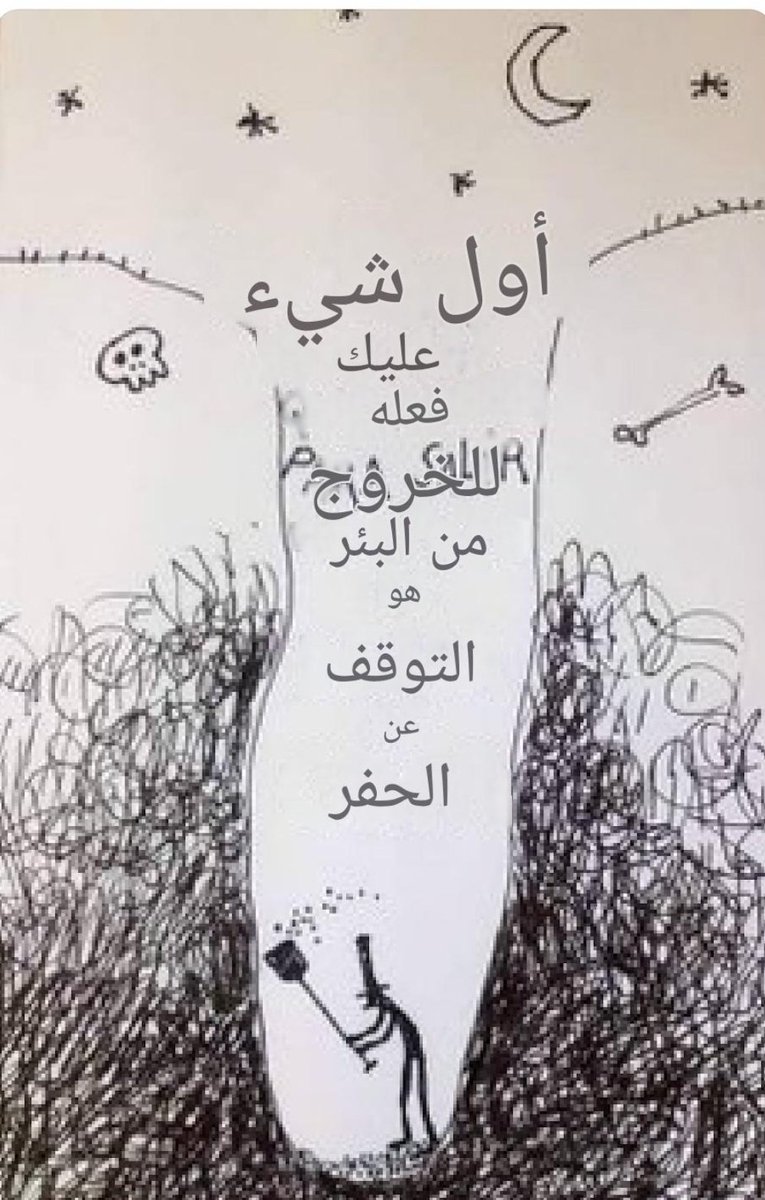 أول شيء
عليك
فعله
للخروج
من البئر
هو
التوقف
عن
الحفر